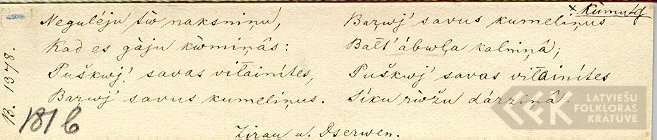 × Kumuts
Negulēju šo naksniņu,
Kad es gāju kōmiņās:
Puškoj' savas vilainītes,
Baŗoj' savus kumeliņus.
Baŗoj' savus kumeliņus
Balt' ābuļa kalniņā;
Puškoj' savas vilainītes
Sīku rōžu dārziņā.
Zirau u. Dserwen.
B. 1378.
1816
LATVIEŠU
FOLKLORAS
KRĀTUVE
LFK